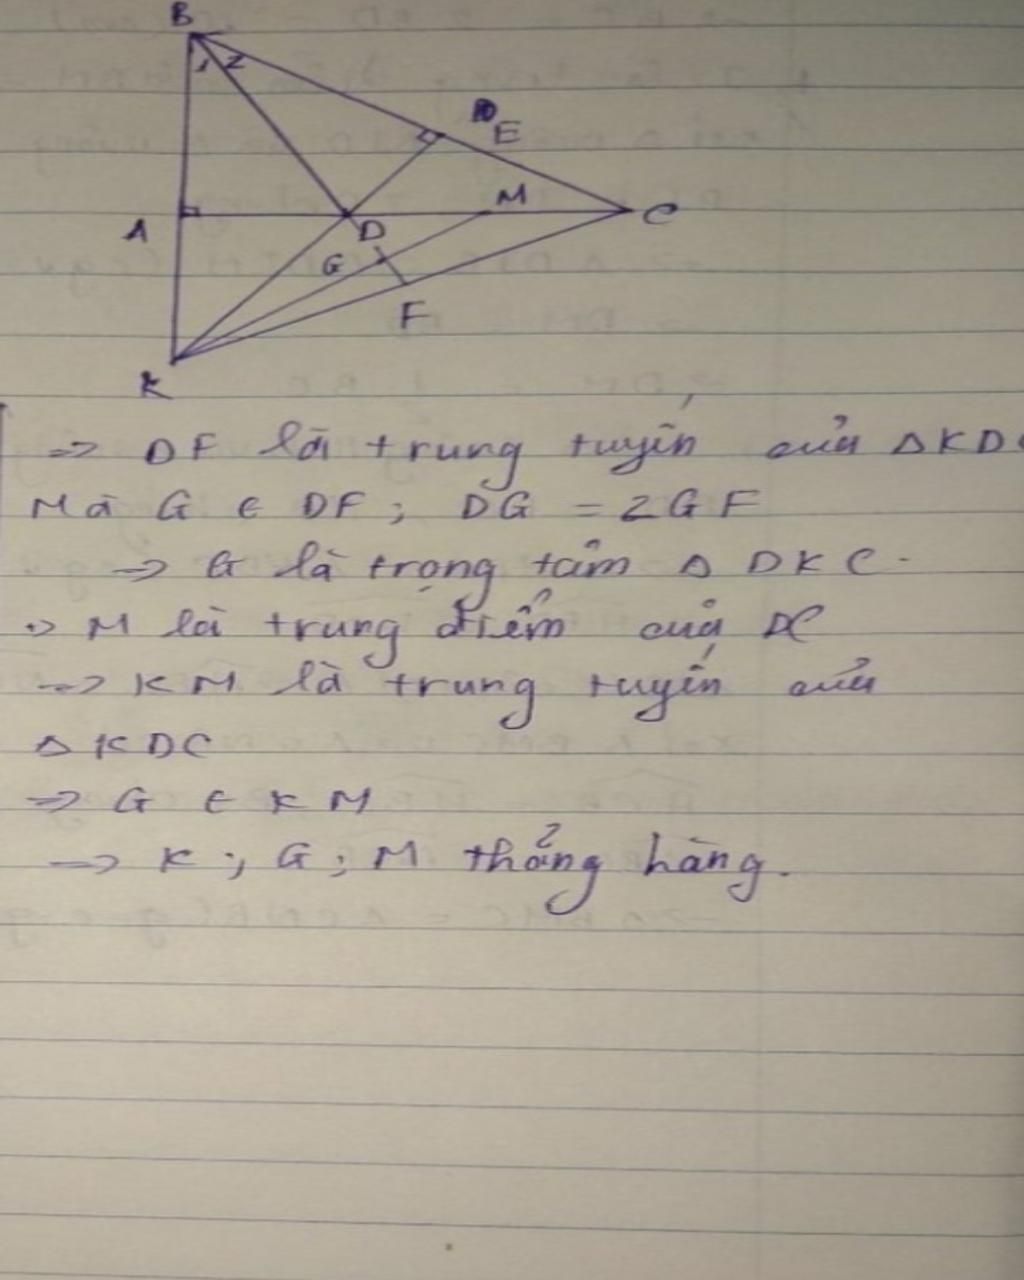 B
1 2
E
M
A
D
C
G
F
K
=> DF là trung tuyến của ΔKDC
Mà G ∈ DF ; DG = 2GF
=> G là trọng tâm Δ DKC.
M là trung điểm của DC
=> KM là trung tuyến của
ΔKDC
=> G ∈ KM
=> K ; G ; M thẳng hàng.